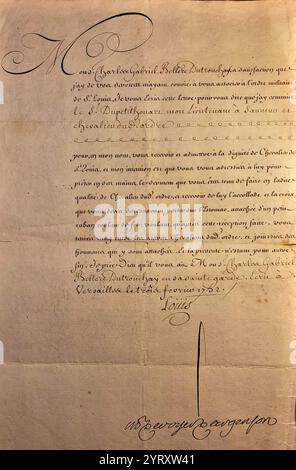 Mons. Charles Gabriel Bellere Dutronchay, la satisfaction que
j'ay de vos services m'ayant convié a vous associer a l'ordre militaire
de St. Louis, Je vous écris cette lettre pour vous dire que j'ay commis
le Sr. Dupetitthouars mon Lieutenant à Saumur et
chevalier dud. ordre
pour, en mon nom, vous recevoir et admettre à la dignité de Chevalier de
St. Louis, et mon intention est que vous vous adressiés a luy pour
prêter en ses mains le serment que vous êtes tenu de faire en lad.
qualité de Chevalier dud. ordre, et recevoir de luy l'accolade et la croix
que vous devés
ruban couleur de feu voulant qu'après cette réception faite vous
Chevaliers dud. ordre, et jouissiés des
honneurs qui y sont attachés. Et la présente n'étant pour autre
fin, Je prie Dieu qu'il vous ait Mons. Charles Gabriel
Bellere Dutronchay en sa sainte garde. Ecrit à
Versailles le février 1752.
Louis
M. P. de Voyer d'argenson
alamy
Image ID: 2GYXW41
www.alamy.com